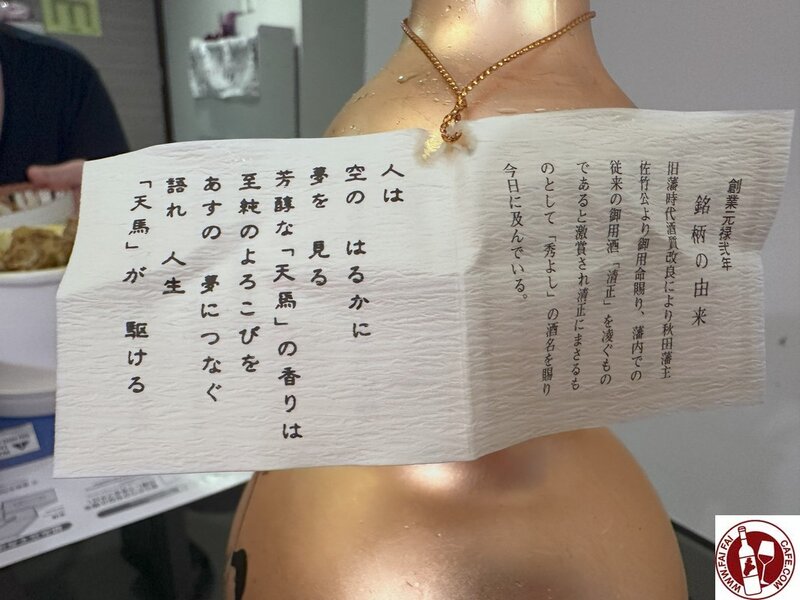 創業元禄弐年
銘柄の由来
旧藩時代酒質改良により秋田藩主
佐竹公より御用命賜り、藩内での
従来の御用酒「清正」を凌ぐもの
であると激賞され清正にまさるも
のとして「秀よし」の酒名を賜り
今日に及んでいる。
人は
空の はるかに
夢を 見る
芳醇な「天馬」の香りは
至純のよろこびを
あすの 夢につなぐ
語れ 人生
「天馬」が 駆ける
WWW.FAI FAI CAFE.COM